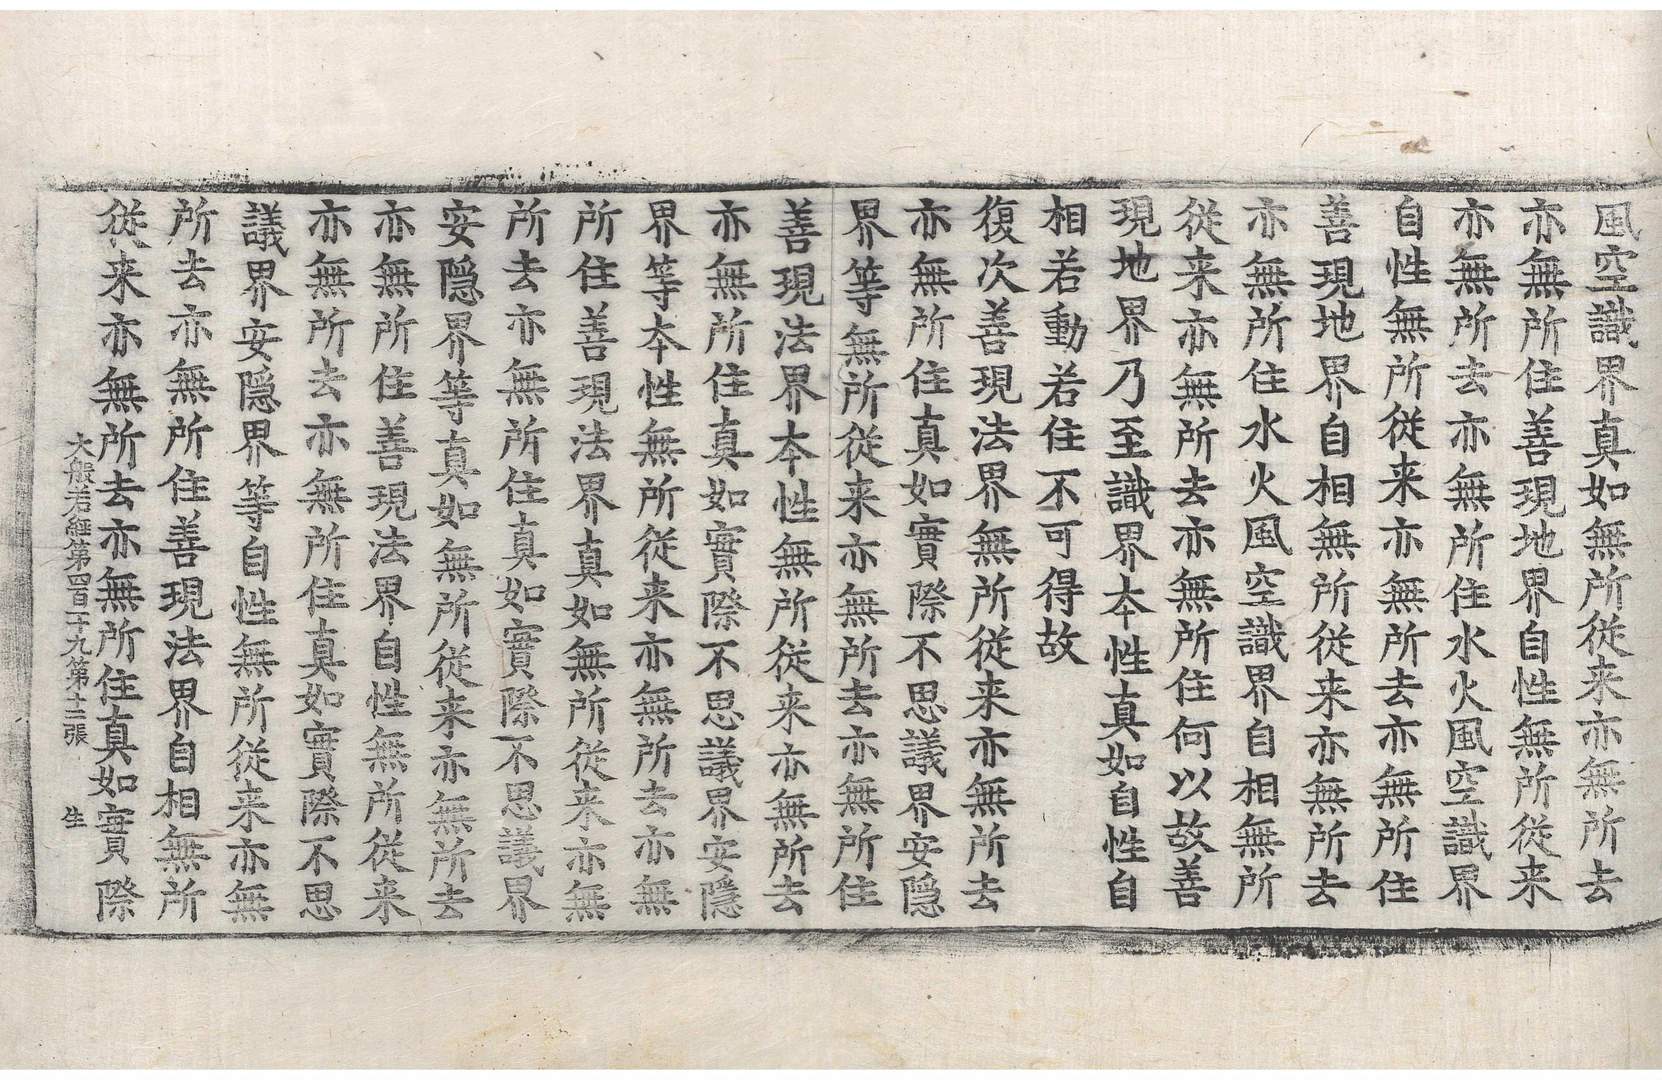 風空識界真如無所從来亦無所去
亦無所住善現地界自性無所從来
亦無所去亦無所住水火風空識界
自性無所從来亦無所去亦無所住
善現地界自相無所從来亦無所去
亦無所住水火風空識界自相無所
從来亦無所去亦無所住何以故善
現地界乃至識界本性真如自性自
相若動若住不可得故
復次善現法界無所從来亦無所去
亦無所住真如實際不思議界安隠
界等無所從来亦無所去亦無所住
善現法界本性無所從来亦無所去
亦無所住真如實際不思議界安隠
界等本性無所從来亦無所去亦無
所住善現法界真如無所從来亦無
所去亦無所住真如實際不思議界
安隠界等真如無所從来亦無所去
亦無所住善現法界自性無所從来
亦無所去亦無所住真如實際不思
議界安隠界等自性無所從来亦無
所去亦無所住善現法界自相無所
從来亦無所去亦無所住真如實際
大般若經第四百十九第十二張 生